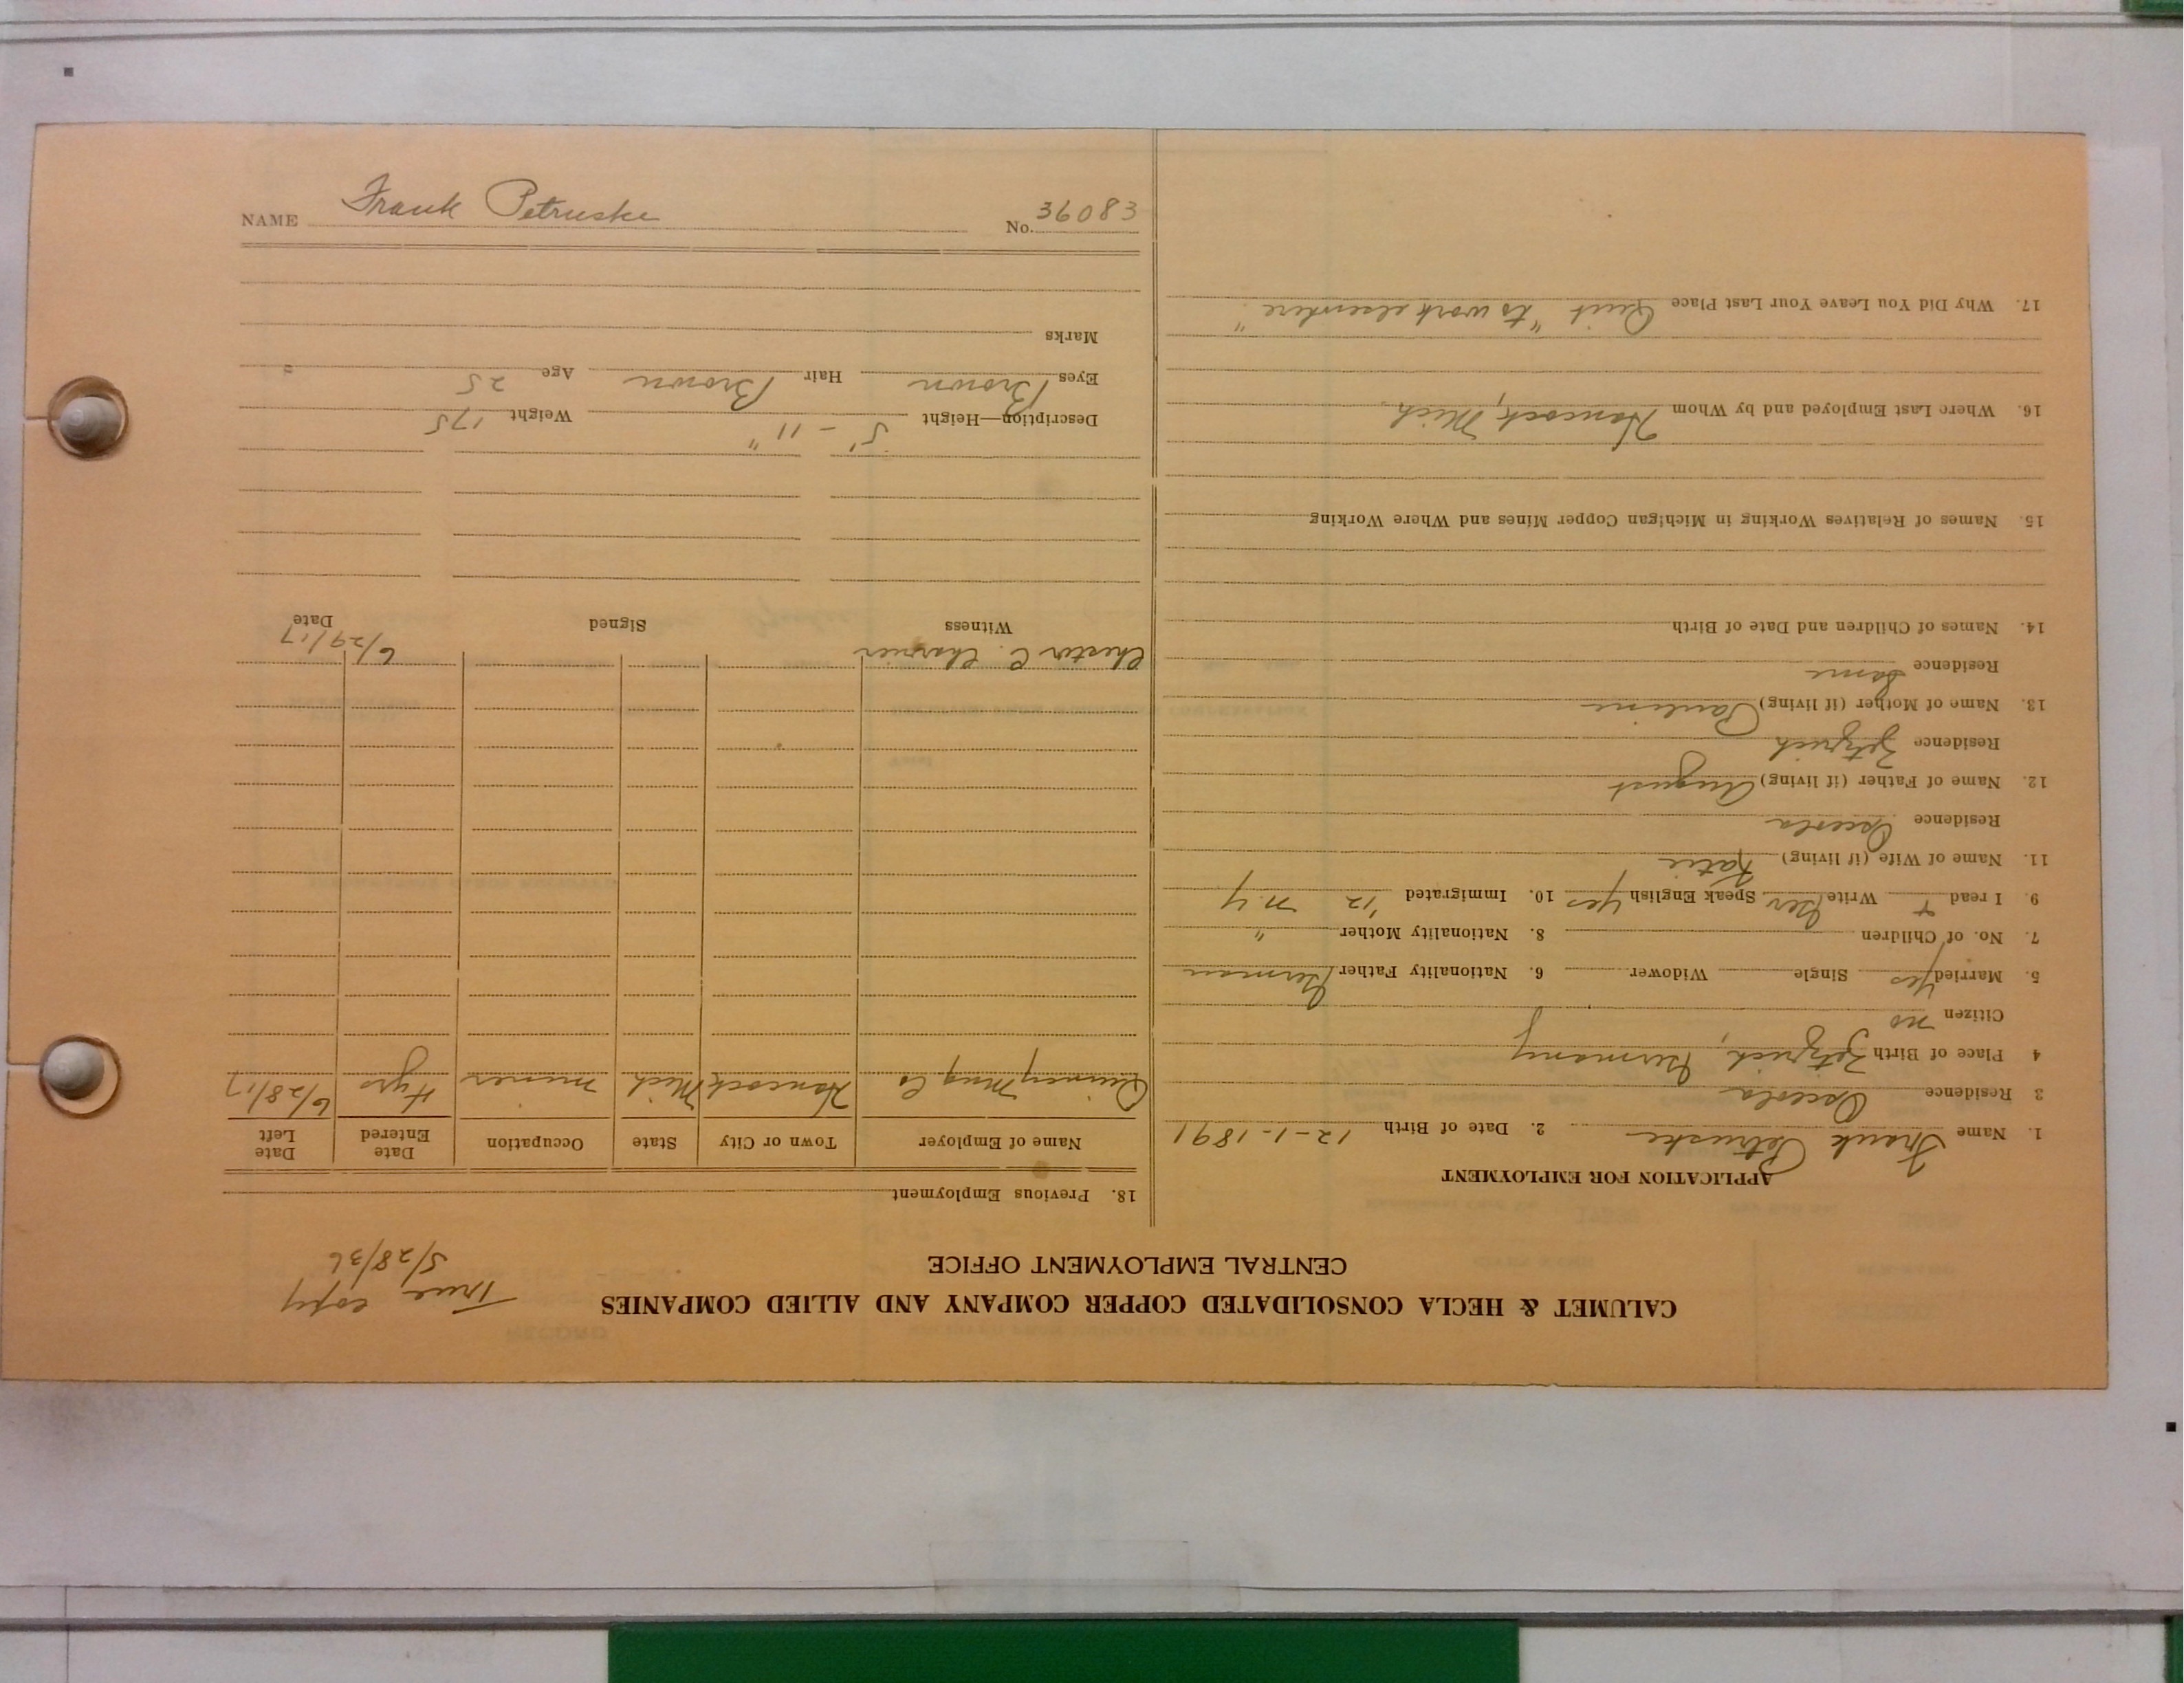 CALUMET & HECLA CONSOLIDATED COPPER COMPANY AND ALLIED COMPANIES
CENTRAL EMPLOYMENT OFFICE
True copy
5/28/36
APPLICATION FOR EMPLOYMENT
1. Name Frank Petruske 2. Date of Birth 12-1-1891
3 Residence Osceola
4 Place of Birth Germany
Citizen no
5. Married yes Single Widower 6. Nationality Father German
7. No. of Children 8. Nationality Mother "
9. I read + Write Ger Speak English yes 10. Immigrated '12 N.Y
11. Name of Wife (if living) Katie
Residence Osceola
12. Name of Father (if living) August
Residence
13. Name of Mother (if living) Pauline
Residence Same
14. Names of Children and Date of Birth
15. Names of Relatives Working in Michigan Copper Mines and Where Working
16. Where Last Employed and by Whom Hancock, Mich.
17. Why Did You Leave Your Last Place Quit "to work elsewhere"
18. Previous Employment
Name of Employer Town or City State Occupation Date Entered Date Left
Quincy Mng Co Hancock Mich miner 4 yrs 6/28/17
Chester C. Charrier 6/29/17
Witness Signed Date
Description—Height 5'-11" Weight 175
Eyes Brown Hair Brown Age 25
Marks
NAME Frank Petruske No. 36083